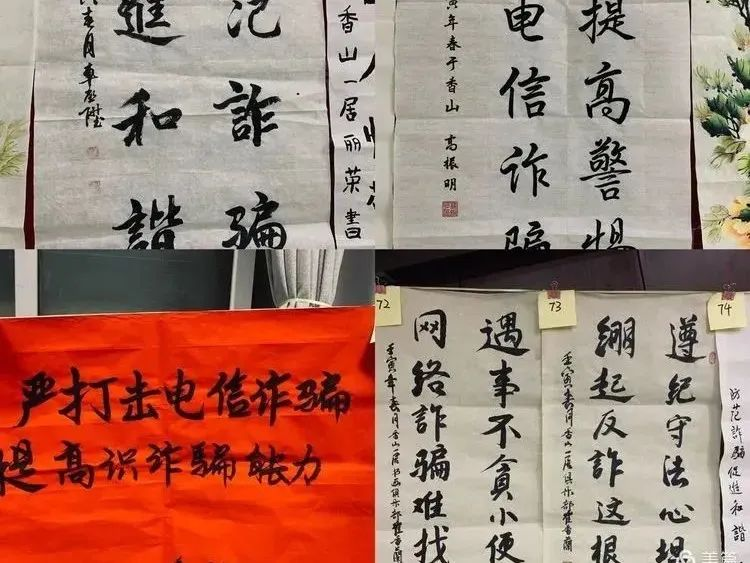 香山一居丽英書
氾詐骗
進和諧
寅年春月
提高警惕
电信诈骗
寅年春于香山 高振明
严打击电信诈骗
提高识诈骗能力
72
73
74
遇事不贪小便
网络詐骗难找
壬寅年春月香山一居
遵纪守法心
绷起反詐这根
壬寅春月香山一居
防范詐骗促進和諧
美篇